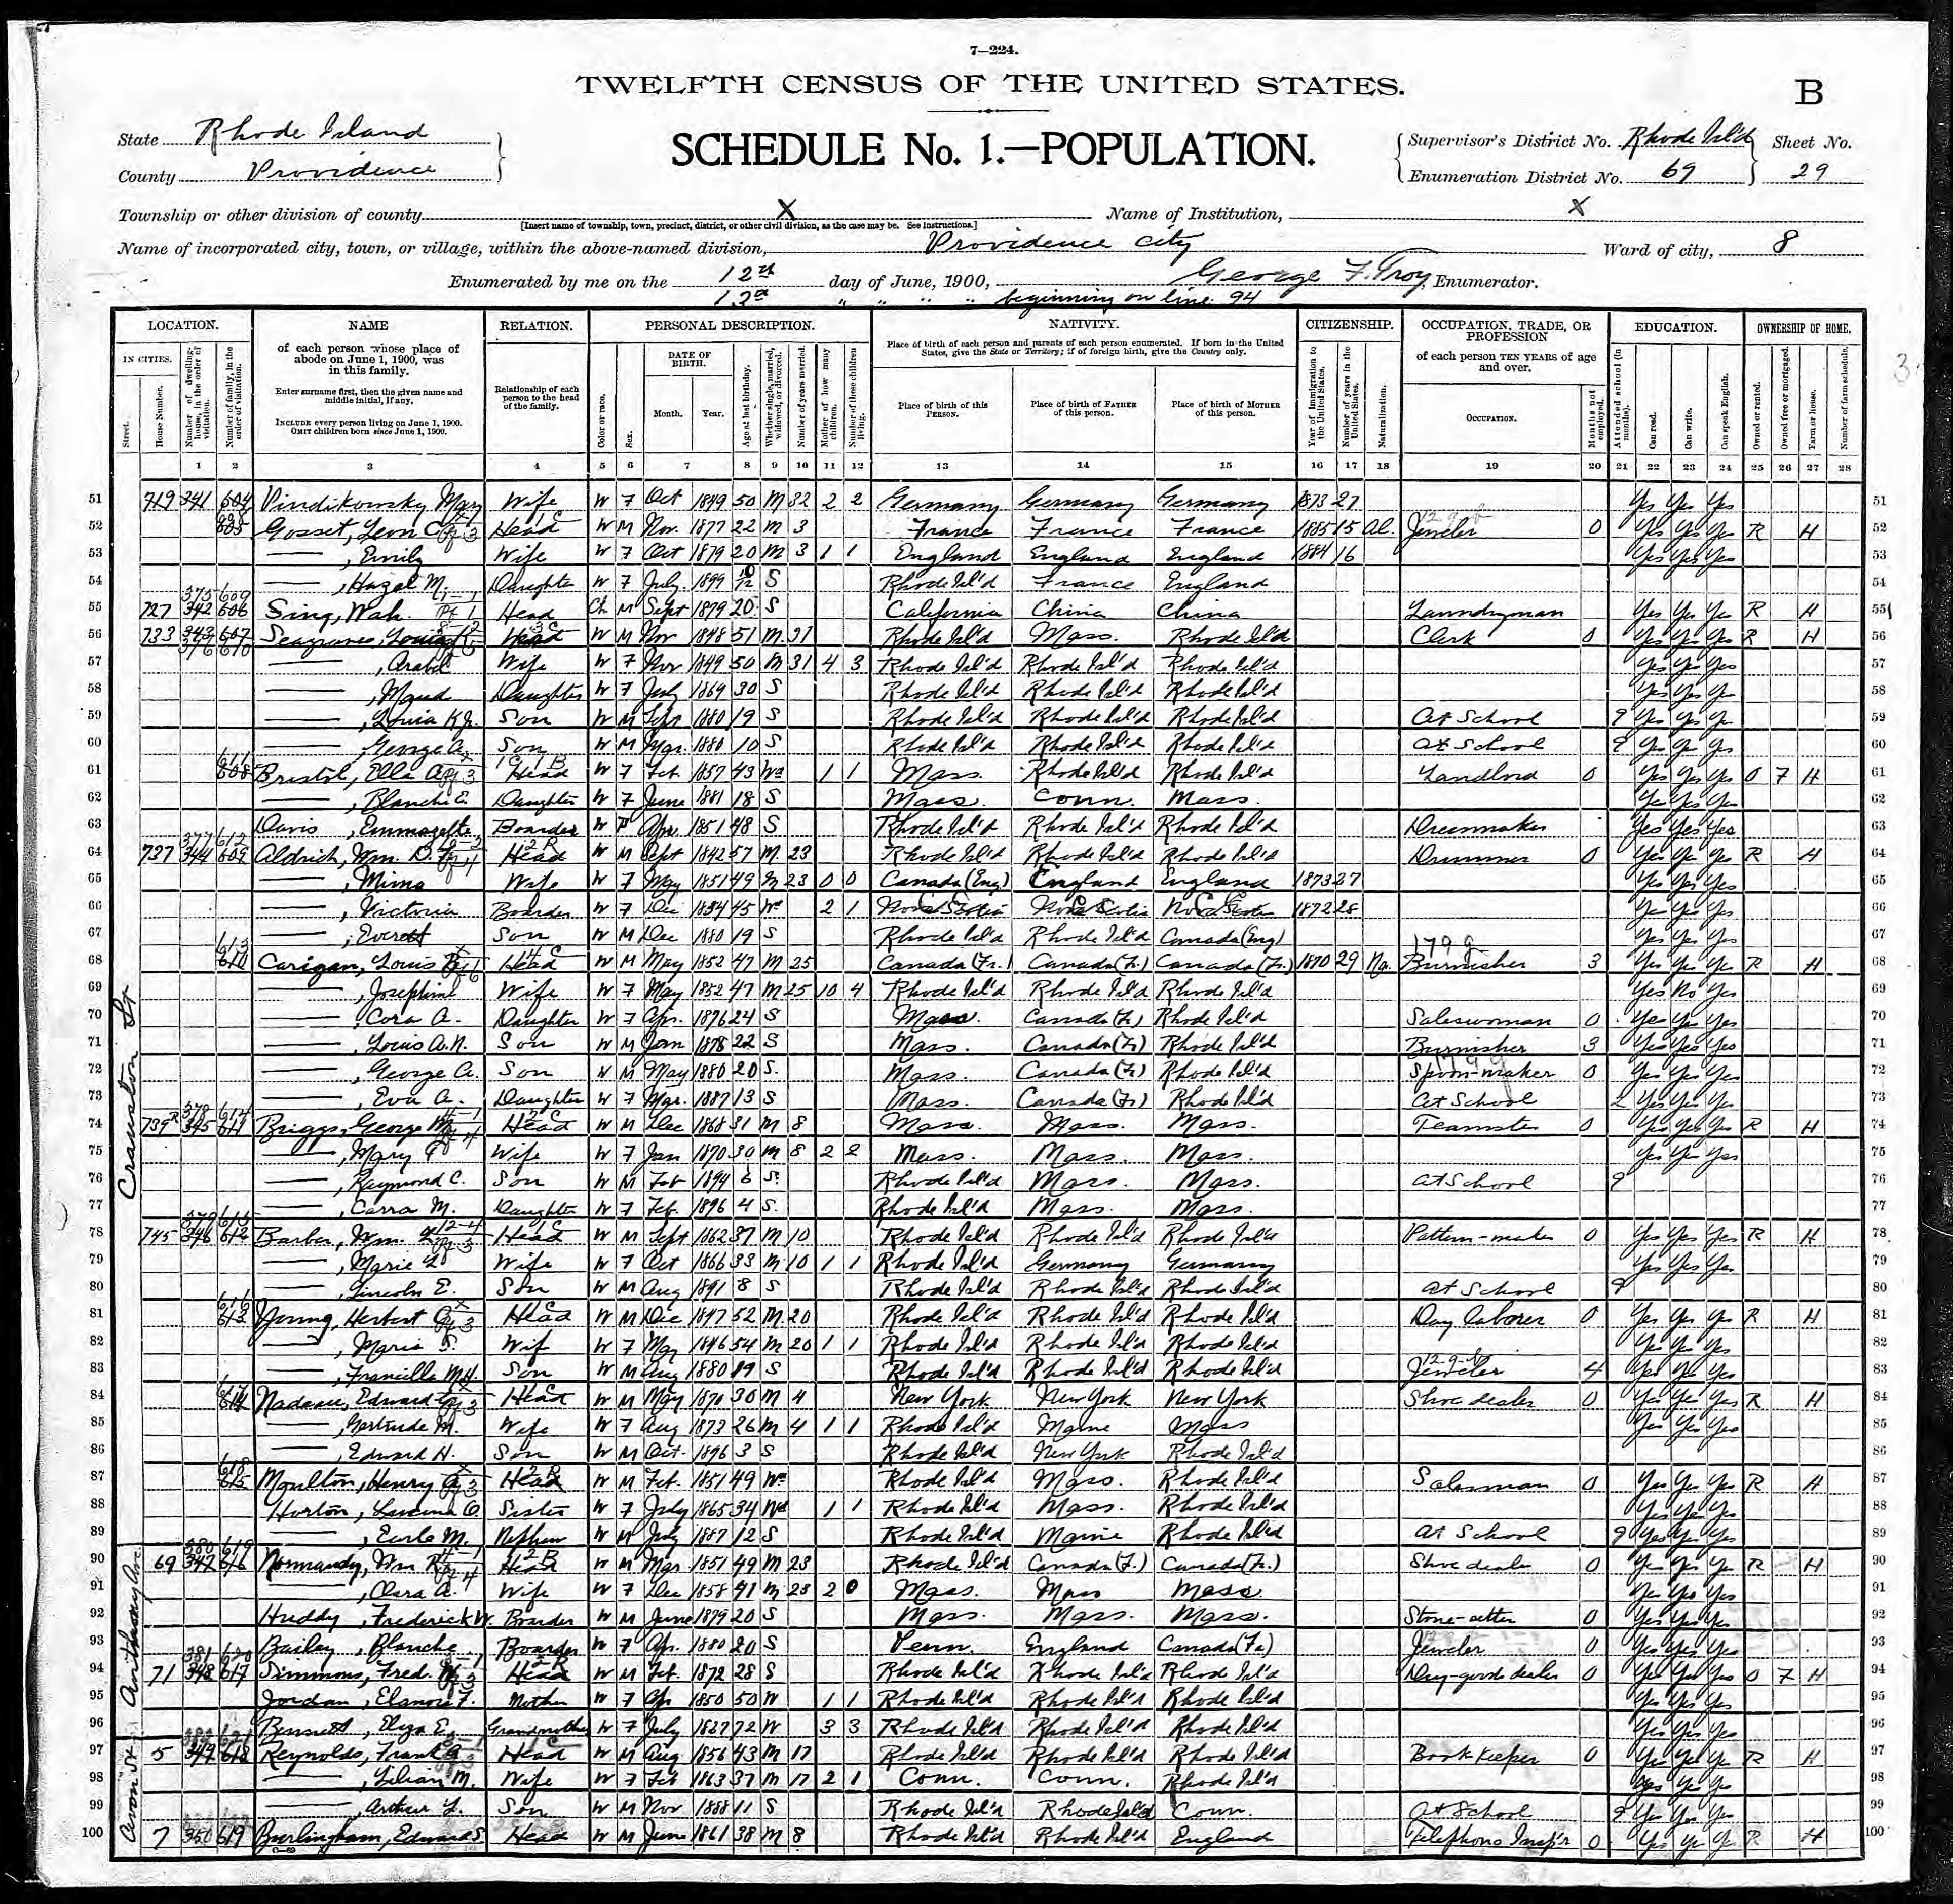 7—224.
TWELFTH CENSUS OF THE UNITED STATES.
B
State Rhode Island
County Providence
SCHEDULE No. 1.—POPULATION.
Supervisor's District No. Rhode Isl'd Sheet No.
Enumeration District No. 69 29
Township or other division of county X Name of Institution, X
[Insert name of township, town, precinct, district, or other civil division, as the case may be. See instructions.]
Name of incorporated city, town, or village, within the above-named division, Providence city Ward of city, 8
Enumerated by me on the 12th day of June, 1900, George F. Troy, Enumerator.
" " " " beginning on line 94
LOCATION. NAME RELATION. PERSONAL DESCRIPTION. NATIVITY. CITIZENSHIP. OCCUPATION, TRADE, OR PROFESSION EDUCATION. OWNERSHIP OF HOME.
IN CITIES.
Street.
House Number.
Number of dwelling-house, in the order of visitation.
Number of family, in the order of visitation.
of each person whose place of abode on June 1, 1900, was in this family.
Enter surname first, then the given name and middle initial, if any.
INCLUDE every person living on June 1, 1900.
OMIT children born since June 1, 1900.
Relationship of each person to the head of the family.
Color or race.
Sex.
DATE OF BIRTH.
Month. Year.
Age at last birthday.
Whether single, married, widowed, or divorced.
Number of years married.
Mother of how many children.
Number of these children living.
Place of birth of each person and parents of each person enumerated. If born in the United States, give the State or Territory; if of foreign birth, give the Country only.
Place of birth of this PERSON.
Place of birth of FATHER of this person.
Place of birth of MOTHER of this person.
Year of immigration to the United States.
Number of years in the United States.
Naturalization.
of each person TEN YEARS of age and over.
OCCUPATION.
Months not employed.
Attended school (in months).
Can read.
Can write.
Can speak English.
Owned or rented.
Owned free or mortgaged.
Farm or house.
Number of farm schedule.
1 2 3 4 5 6 7 8 9 10 11 12 13 14 15 16 17 18 19 20 21 22 23 24 25 26 27 28
Cranston St
51 719 341 604 Pindikowsky Mary Wife W F Oct 1849 50 M 32 2 2 Germany Germany Germany 1873 27 Yes Yes Yes 51
52 605 Gosset, Leon C Head W M Nov. 1877 22 M 3 France France France 1885 15 Al. Jeweler 0 Yes Yes Yes R H 52
53 ——, Emily Wife W F Oct 1879 20 M 3 1 1 England England England 1884 16 Yes Yes Yes 53
54 ——, Hazel M. Daughter W F July 1899 10/12 S Rhode Isl'd France England 54
55 727 342 606 Sing, Wah. Head Ch M Sept 1879 20 S California China China Laundryman Yes Yes Yes R H 55
56 733 343 607 Seagrave, Louis Head W M Nov 1848 51 M 31 Rhode Isl'd Mass. Rhode Isl'd Clerk 0 Yes Yes Yes R H 56
57 ——, Arabel Wife W F Nov 1849 50 M 31 4 3 Rhode Isl'd Rhode Isl'd Rhode Isl'd Yes Yes Yes 57
58 ——, Maud Daughter W F July 1869 30 S Rhode Isl'd Rhode Isl'd Rhode Isl'd Yes Yes Yes 58
59 ——, Son W M 1880 19 S Rhode Isl'd Rhode Isl'd Rhode Isl'd At School 9 Yes Yes Yes 59
60 ——, George A. Son W M Mar. 10 S Rhode Isl'd Rhode Isl'd Rhode Isl'd At School 9 Yes Yes Yes 60
61 608 Bristol, Ella A Head W F Feb. 1857 43 Wd 1 1 Mass. Rhode Isl'd Rhode Isl'd Landlord 0 Yes Yes Yes O F H 61
62 ——, Blanche E. Daughter W F June 1881 18 S Mass. Conn. Mass. Yes Yes Yes 62
63 Davis, Emmagette Boarder W F Apr. 1851 48 S Rhode Isl'd Rhode Isl'd Rhode Isl'd Dressmaker Yes Yes Yes 63
64 737 344 609 Aldrich, Wm. D. Head W M Sept 1842 57 M 23 Rhode Isl'd Rhode Isl'd Rhode Isl'd Drummer 0 Yes Yes Yes R H 64
65 ——, Mima Wife W F May 1851 49 M 23 0 0 Canada (Eng) England England 1873 27 Yes Yes Yes 65
66 ——, Victoria Boarder W F Dec 1854 45 Wd 2 1 Nova Scotia Nova Scotia Nova Scotia 1872 28 Yes Yes Yes 66
67 ——, Everett Son W M Dec 1880 19 S Rhode Isl'd Rhode Isl'd Canada (Eng) Yes Yes Yes 67
68 610 Carigan, Louis Head W M May 1852 47 M 25 Canada (Fr.) Canada (Fr.) Canada (Fr.) 1870 29 Na. Burnisher 3 Yes Yes Yes R H 68
69 ——, Josephine Wife W F May 1852 47 M 25 10 4 Rhode Isl'd Rhode Isl'd Rhode Isl'd Yes No Yes 69
70 ——, Cora A. Daughter W F Apr. 1876 24 S Mass. Canada (Fr) Rhode Isl'd Saleswoman 0 Yes Yes Yes 70
71 ——, Louis A.N. Son W M Jan 1878 22 S Mass. Canada (Fr) Rhode Isl'd Burnisher 3 Yes Yes Yes 71
72 ——, George A. Son W M May 1880 20 S. Mass. Canada (Fr) Rhode Isl'd Spoon-maker 0 Yes Yes Yes 72
73 ——, Eva A. Daughter W F Mar. 1887 13 S Mass. Canada (Fr) Rhode Isl'd At School 2 Yes Yes Yes 73
74 739R 345 611 Briggs, George Head W M Dec 1868 31 M 8 Mass. Mass. Mass. Teamster 0 Yes Yes Yes R H 74
75 ——, Mary Wife W F Jan 1870 30 M 8 2 2 Mass. Mass. Mass. Yes Yes Yes 75
76 ——, Raymond C. Son W M Feb 1894 6 S. Rhode Isl'd Mass. Mass. At School 9 76
77 ——, Carra M. Daughter W F Feb. 1896 4 S. Rhode Isl'd Mass. Mass. 77
78 745 346 612 Barber, Wm. Head W M Sept 1862 37 M 10 Rhode Isl'd Rhode Isl'd Rhode Isl'd Pattern-maker 0 Yes Yes Yes R H 78
79 ——, Marie L Wife W F Oct 1866 33 M 10 1 1 Rhode Isl'd Germany Germany Yes Yes Yes 79
80 ——, Lincoln E. Son W M Aug 1891 8 S Rhode Isl'd Rhode Isl'd Rhode Isl'd At School 9 80
81 613 Young, Herbert Head W M Dec 1847 52 M 20 Rhode Isl'd Rhode Isl'd Rhode Isl'd Day laborer 0 Yes Yes Yes R H 81
82 ——, Maria S. Wife W F May 1846 54 M 20 1 1 Rhode Isl'd Rhode Isl'd Rhode Isl'd Yes Yes Yes 82
83 ——, Francello M. Son W M Aug 1880 19 S Rhode Isl'd Rhode Isl'd Rhode Isl'd Jeweler 4 Yes Yes Yes 83
84 614 Nadeau, Edward Head W M May 1870 30 M 4 New York New York New York Shoe dealer 0 Yes Yes Yes R H 84
85 ——, Gertrude M. Wife W F Aug 1873 26 M 4 1 1 Rhode Isl'd Maine Mass Yes Yes Yes 85
86 ——, Edward H. Son W M Oct. 1896 3 S Rhode Isl'd New York Rhode Isl'd 86
87 615 Moulton, Henry Head W M Feb. 1851 49 Wd Rhode Isl'd Mass. Rhode Isl'd Salesman 0 Yes Yes Yes R H 87
88 Horton, Sister W F July 1865 34 Wd 1 1 Rhode Isl'd Mass. Rhode Isl'd Yes Yes Yes 88
89 ——, Earle M. Nephew W M July 1887 12 S Rhode Isl'd Maine Rhode Isl'd At School 9 Yes Yes Yes 89
Anthony Ave.
90 69 347 616 Normandy, Wm Head W M Mar. 1851 49 M 23 Rhode Isl'd Canada (Fr.) Canada (Fr.) Shoe dealer 0 Yes Yes Yes R H 90
91 ——, Clara A. Wife W F Dec 1858 41 M 23 2 0 Mass. Mass Mass. Yes Yes Yes 91
92 Huddy, Frederick W. Boarder W M June 1879 20 S Mass. Mass. Mass. Stone-setter 0 Yes Yes Yes 92
93 Bailey, Blanche Boarder W F Apr. 1880 20 S Penn. England Canada (Fr.) Jeweler 0 Yes Yes Yes 93
94 71 348 617 Simmons, Fred. Head W M Feb. 1872 28 S Rhode Isl'd Rhode Isl'd Rhode Isl'd Dry-goods dealer 0 Yes Yes Yes O F H 94
95 Jordan, Elanore F. Mother W F Apr 1850 50 W 1 1 Rhode Isl'd Rhode Isl'd Rhode Isl'd Yes Yes Yes 95
96 Bennett, Eliza E. Grandmother W F July 1827 72 W 3 3 Rhode Isl'd Rhode Isl'd Rhode Isl'd Yes Yes Yes 96
Avon St.
97 5 349 618 Reynolds, Frank Head W M Aug 1856 43 M 17 Rhode Isl'd Rhode Isl'd Rhode Isl'd Book keeper 0 Yes Yes Yes R H 97
98 ——, Lilian M. Wife W F Feb 1863 37 M 17 2 1 Conn. Conn. Rhode Isl'd Yes Yes Yes 98
99 ——, Arthur L. Son W M Nov 1888 11 S Rhode Isl'd Rhode Isl'd Conn. At School 9 Yes Yes Yes 99
100 7 350 619 Burlingham, Edward S Head W M June 1861 38 M 8 Rhode Isl'd Rhode Isl'd England Telephone Insp'r 0 Yes Yes Yes R H 100